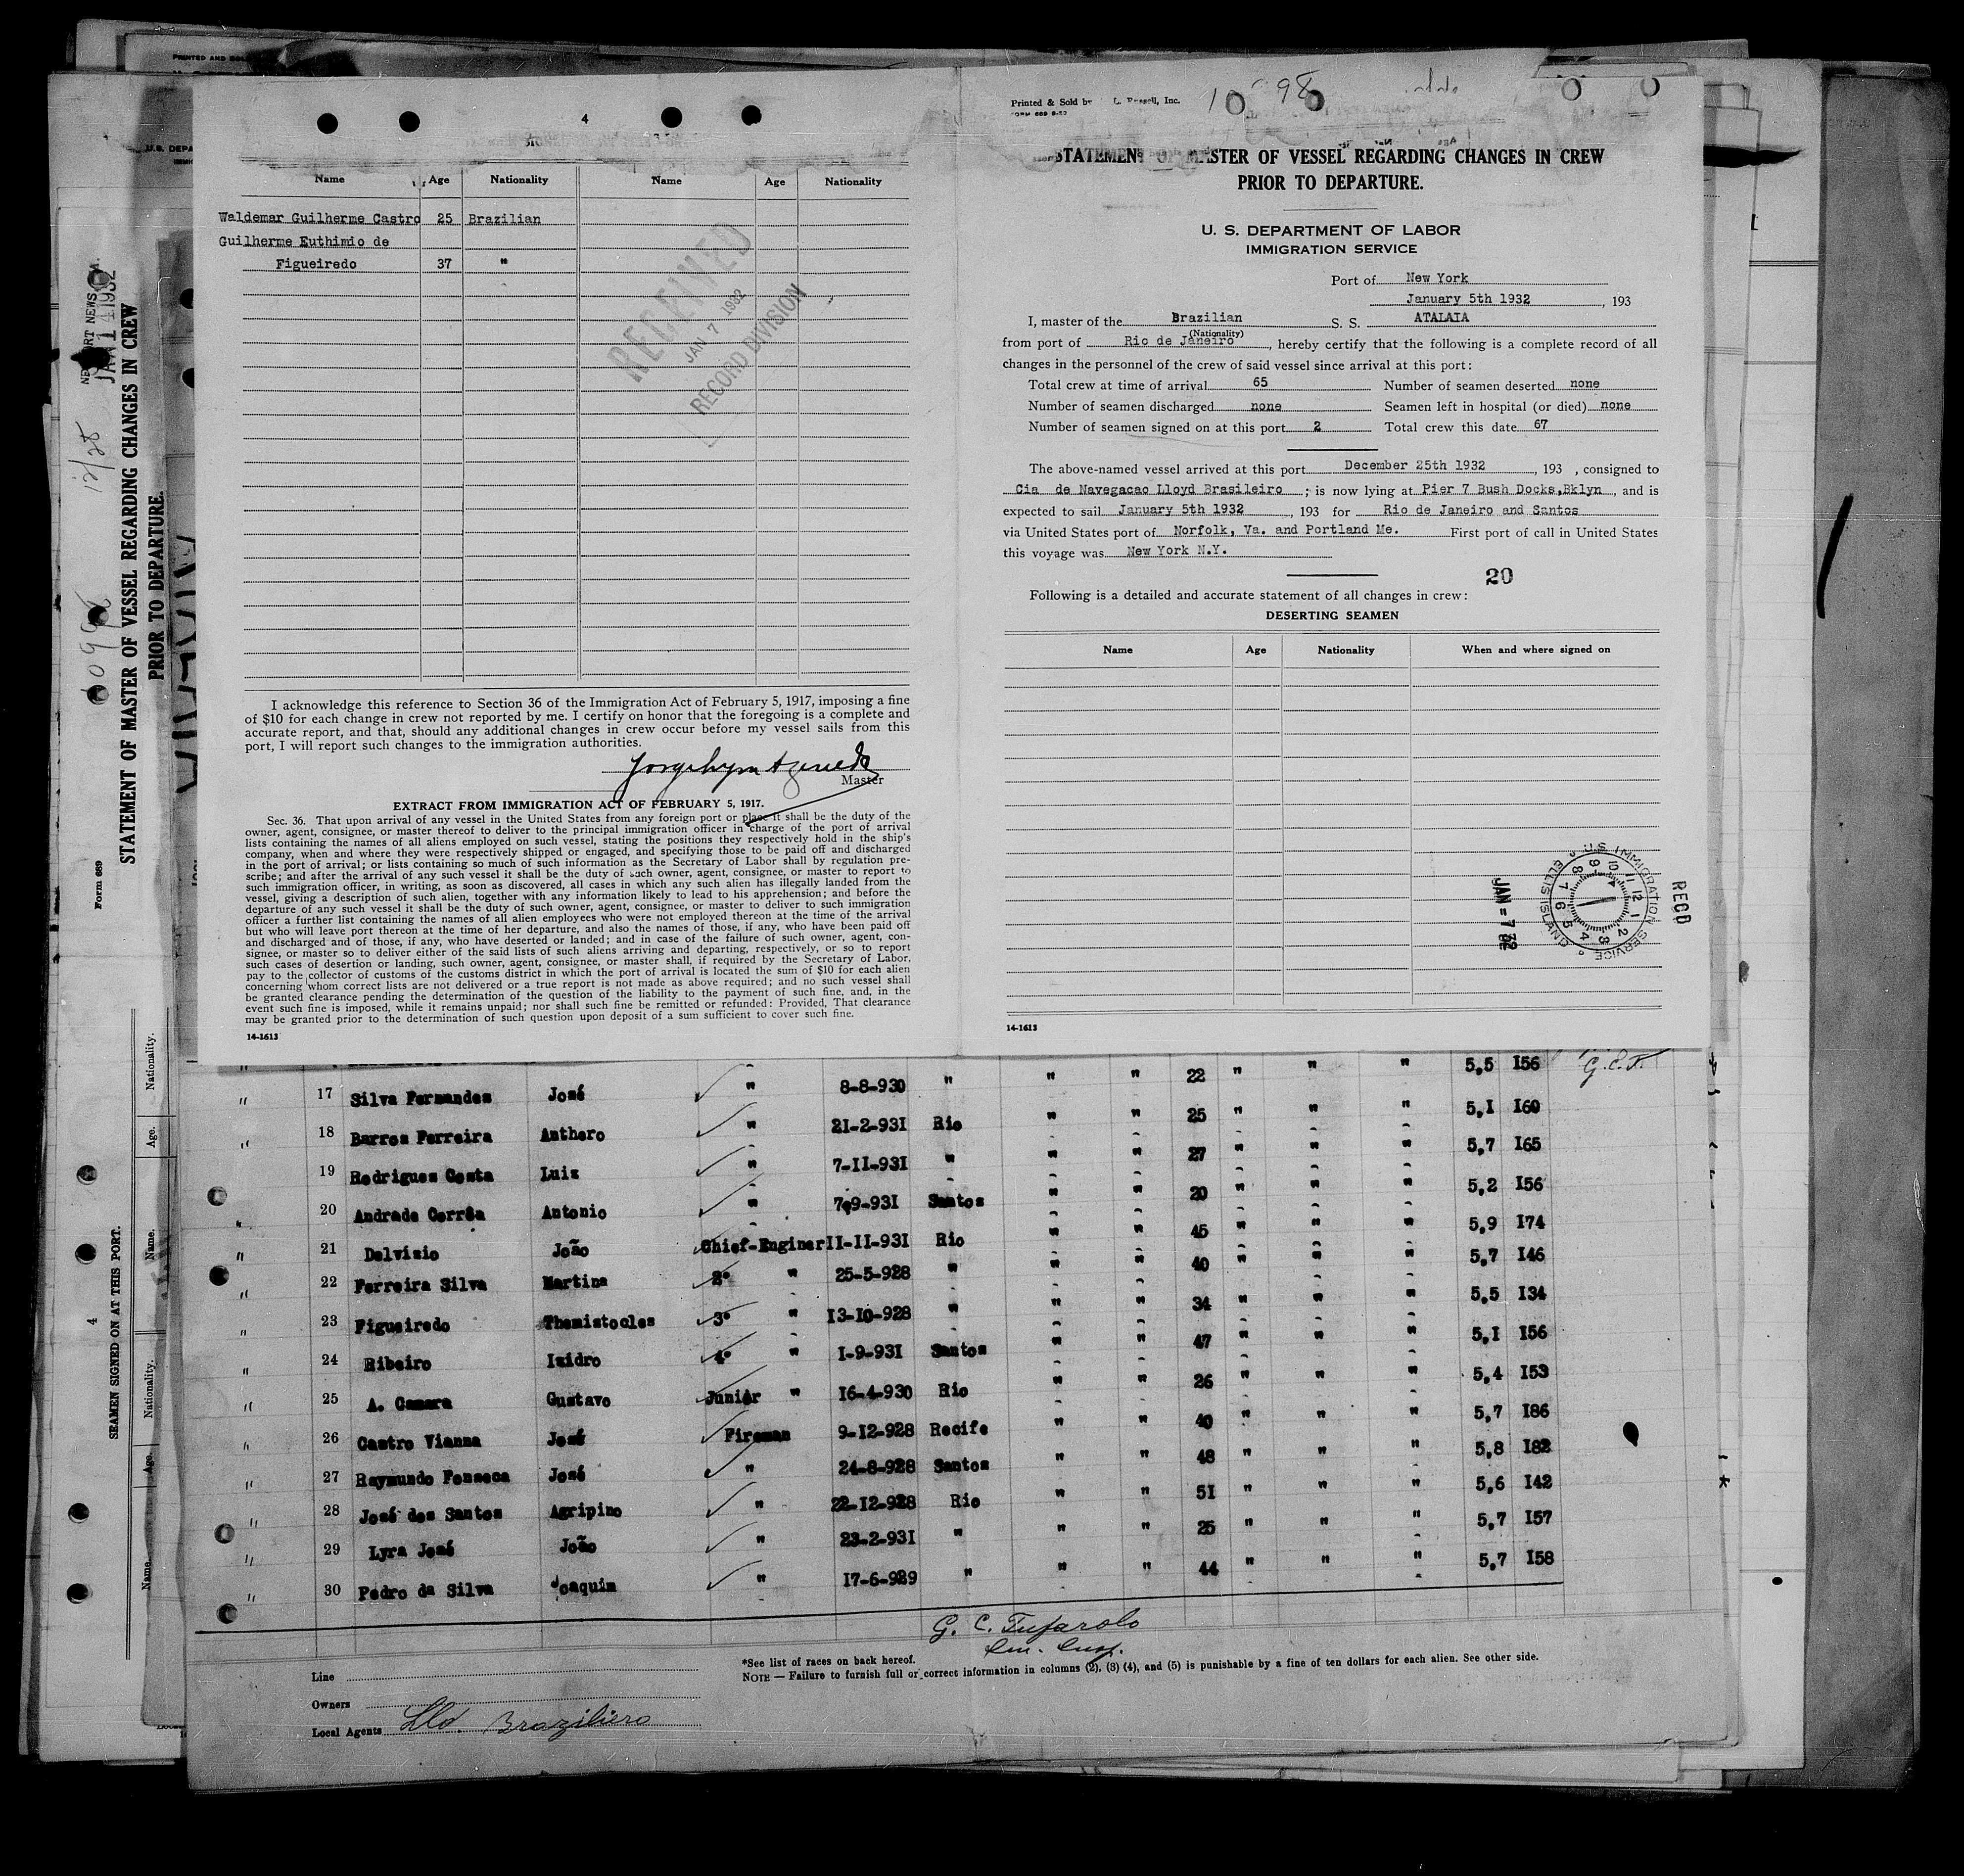 PRINTED AND SOL
U.S. DEPA
4
Name Age Nationality Name Age Nationality
Waldemar Guilherme Castro 25 Brazilian
Guilherme Euthimio de
Figueiredo 37 "
RECEIVED
JAN 7 1932
RECORD DIVISION
I acknowledge this reference to Section 36 of the Immigration Act of February 5, 1917, imposing a fine
of $10 for each change in crew not reported by me. I certify on honor that the foregoing is a complete and
accurate report, and that, should any additional changes in crew occur before my vessel sails from this
port, I will report such changes to the immigration authorities.
Master
EXTRACT FROM IMMIGRATION ACT OF FEBRUARY 5, 1917.
Sec. 36. That upon arrival of any vessel in the United States from any foreign port or place it shall be the duty of the
owner, agent, consignee, or master thereof to deliver to the principal immigration officer in charge of the port of arrival
lists containing the names of all aliens employed on such vessel, stating the positions they respectively hold in the ship's
company, when and where they were respectively shipped or engaged, and specifying those to be paid off and discharged
in the port of arrival; or lists containing so much of such information as the Secretary of Labor shall by regulation pre-
scribe; and after the arrival of any such vessel it shall be the duty of such owner, agent, consignee, or master to report to
such immigration officer, in writing, as soon as discovered, all cases in which any such alien has illegally landed from the
vessel, giving a description of such alien, together with any information likely to lead to his apprehension; and before the
departure of any such vessel it shall be the duty of such owner, agent, consignee, or master to deliver to such immigration
officer a further list containing the names of all alien employees who were not employed thereon at the time of the arrival
but who will leave port thereon at the time of her departure, and also the names of those, if any, who have been paid off
and discharged and of those, if any, who have deserted or landed; and in case of the failure of such owner, agent, con-
signee, or master so to deliver either of the said lists of such aliens arriving and departing, respectively, or so to report
such cases of desertion or landing, such owner, agent, consignee, or master shall, if required by the Secretary of Labor,
pay to the collector of customs of the customs district in which the port of arrival is located the sum of $10 for each alien
concerning whom correct lists are not delivered or a true report is not made as above required; and no such vessel shall
be granted clearance pending the determination of the question of the liability to the payment of such fine, and, in the
event such fine is imposed, while it remains unpaid; nor shall such fine be remitted or refunded: Provided, That clearance
may be granted prior to the determination of such question upon deposit of a sum sufficient to cover such fine.
14-1613
Printed & Sold by L. Russell, Inc.
FORM 689
STATEMENT OF MASTER OF VESSEL REGARDING CHANGES IN CREW
PRIOR TO DEPARTURE.
U. S. DEPARTMENT OF LABOR
IMMIGRATION SERVICE
Port of New York
January 5th 1932, 193
I, master of the Brazilian S. S. ATALAIA
(Nationality)
from port of Rio de Janeiro, hereby certify that the following is a complete record of all
changes in the personnel of the crew of said vessel since arrival at this port:
Total crew at time of arrival 65 Number of seamen deserted none
Number of seamen discharged none Seamen left in hospital (or died) none
Number of seamen signed on at this port 2 Total crew this date 67
The above-named vessel arrived at this port December 25th 1932, 193 , consigned to
Cia de Navegacao Lloyd Brasileiro; is now lying at Pier 7 Bush Docks,Bklyn, and is
expected to sail January 5th 1932, 193 for Rio de Janeiro and Santos
via United States port of Norfolk, Va. and Portland Me. First port of call in United States
this voyage was New York N.Y.
20
Following is a detailed and accurate statement of all changes in crew:
DESERTING SEAMEN
Name Age Nationality When and where signed on
RECD
U.S. IMMIGRATION SERVICE ELLIS ISLAND
JAN = 7 32
14-1613
" " " 22 " " " 5,5 I56 G.C.T.
" 17 Silva Fernandes José " 8-8-930 " " " 25 " " " 5,I I60
" 18 Barros Ferreira Anthero " 2I-2-93I Rio " " 27 " " " 5,7 I65
" 19 Rodrigues Costa Luiz " 7-II-93I " " " 20 " " " 5,2 I56
" 20 Andrade Corrêa Antonio " 7-9-93I Santos " " 45 " " " 5,9 I74
" 21 Delvizio João Chief-Enginer II-II-93I Rio " " 40 " " " 5,7 I46
" 22 Ferreira Silva Martins 2º " 25-5-928 " " " 34 " " " 5,5 I34
" 23 Figueiredo Themistocles 3º " I3-I0-928 " " " 47 " " " 5,I I56
" 24 Ribeiro Izidro 4º " I-9-93I Santos " " 26 " " " 5,4 I53
" 25 A. Camara Gustavo Junior " I6-4-930 Rio " " 40 " " " 5,7 I86
" 26 Castro Vianna José Fireman 9-I2-928 Recife " " 48 " " " 5,8 I82
" 27 Raymundo Fonseca José " 24-8-928 Santos " " 5I " " " 5,6 I42
" 28 José dos Santos Agripino " 22-I2-928 Rio " " 25 " " " 5,7 I57
" 29 Lyra José João " 23-2-93I " " " 44 " " " 5,7 I58
" 30 Pedro da Silva Joaquim " I7-6-929 "
G. C. Tufarolo
Imm. Insp.
*See list of races on back hereof.
NOTE — Failure to furnish full or correct information in columns (2), (3) (4), and (5) is punishable by a fine of ten dollars for each alien. See other side.
Line
Owners
Local Agents Lld. Braziliero
Form 689
STATEMENT OF MASTER OF VESSEL REGARDING CHANGES IN CREW
PRIOR TO DEPARTURE.
JAN 14 1932
12/28
ATALAIA
4
SEAMEN SIGNED ON AT THIS PORT.
Name. Age. Nationality. Name. Age. Nationality.